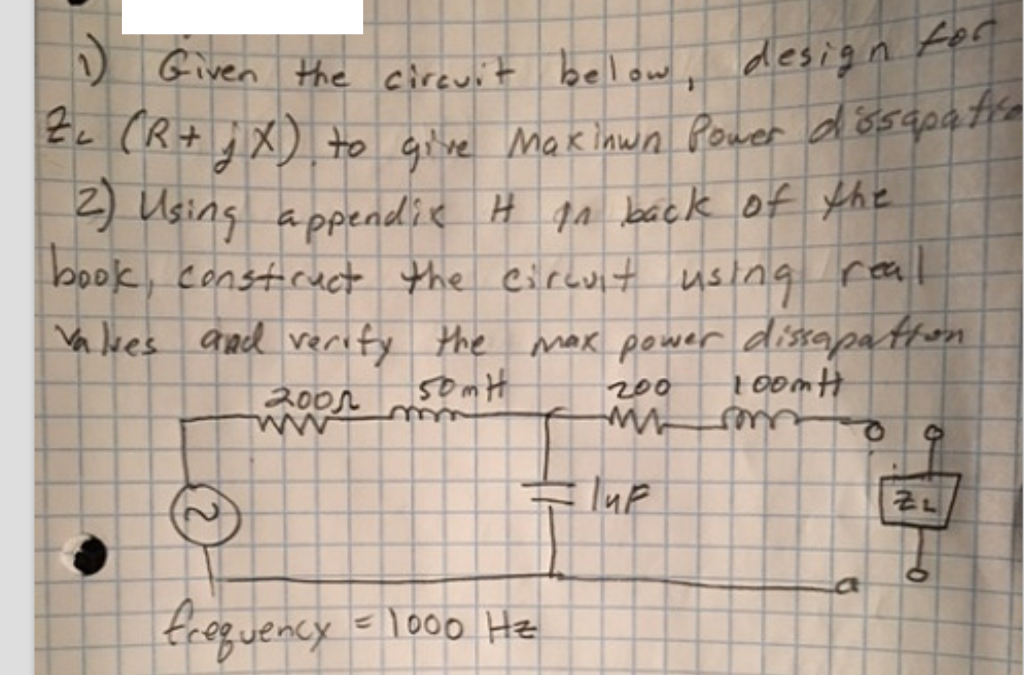 1) Given the circuit below, design for
ZL (R + jX) to give Maximum Power dissapation
2) Using appendix H in back of the
book, construct the circuit using real
values and verify the max power dissapation
200Ω 50mH 200 100mH
1uF
ZL
frequency = 1000 Hz